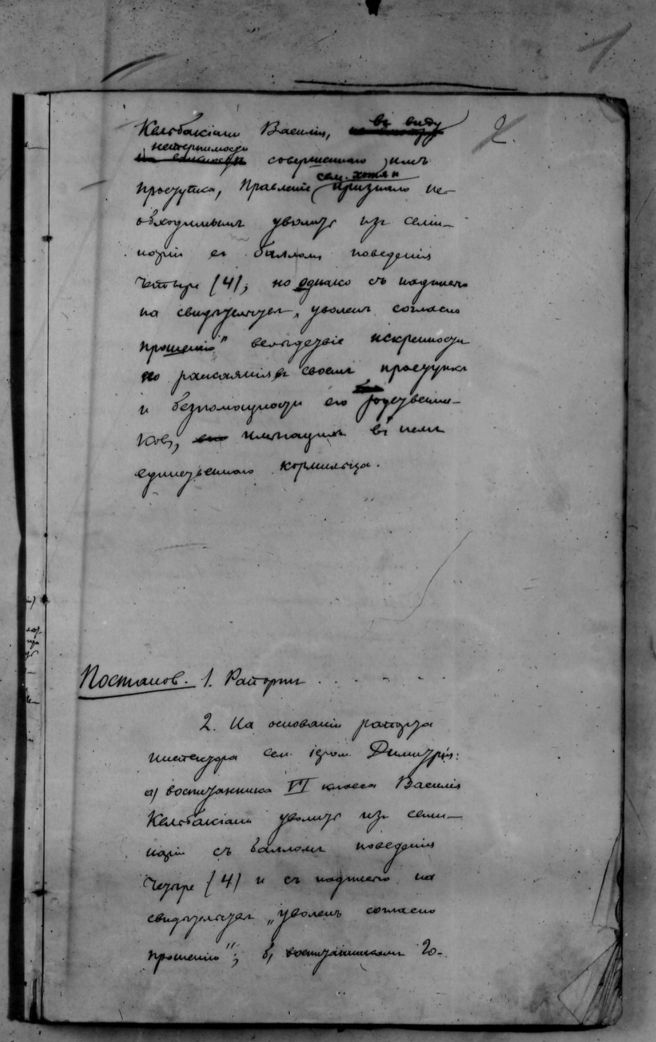 2.
Келбакіани Василія, въ виду
нетерпимости совершеннаго имъ
проступка, Правленіе сем. хотя и признало не-
обходимымъ уволить изъ семи-
наріи съ балломъ поведенія
четыре (4), но однако съ надписью
на свидѣтельствѣ „уволенъ согласно
прошенію" вслѣдствіе искренности
раскаянія въ своемъ проступкѣ
и безпомощности его родственни-
ковъ, имѣющихъ въ немъ
единственнаго кормильца.
Постанов. 1. Рапорты . . . . .
2. На основаніи рапорта
инспектора сем. іером. Димитрія:
а) воспитанника VI класса Василія
Келбакіани уволить изъ семи-
наріи съ балломъ поведенія
четыре (4) и съ надписью на
свидѣтельствѣ „уволенъ согласно
прошенію"; б) воспитанникамъ Го-